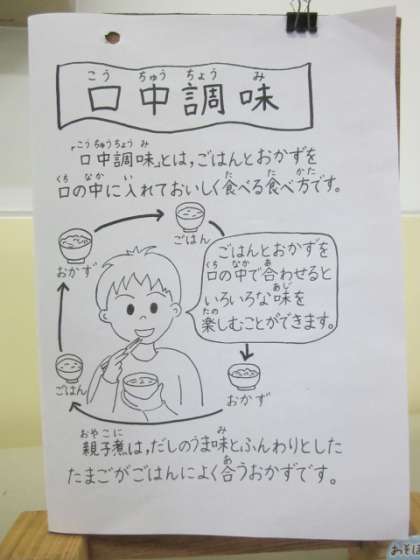 口中調味
「口中調味」とは,ごはんとおかずを
口の中に入れておいしく食べる食べ方です。
ごはん
おかず
ごはんとおかずを
口の中で合わせると
いろいろな味を
楽しむことができます。
ごはん
おかず
親子煮は,だしのうま味とふんわりとした
たまごがごはんによく合うおかずです。